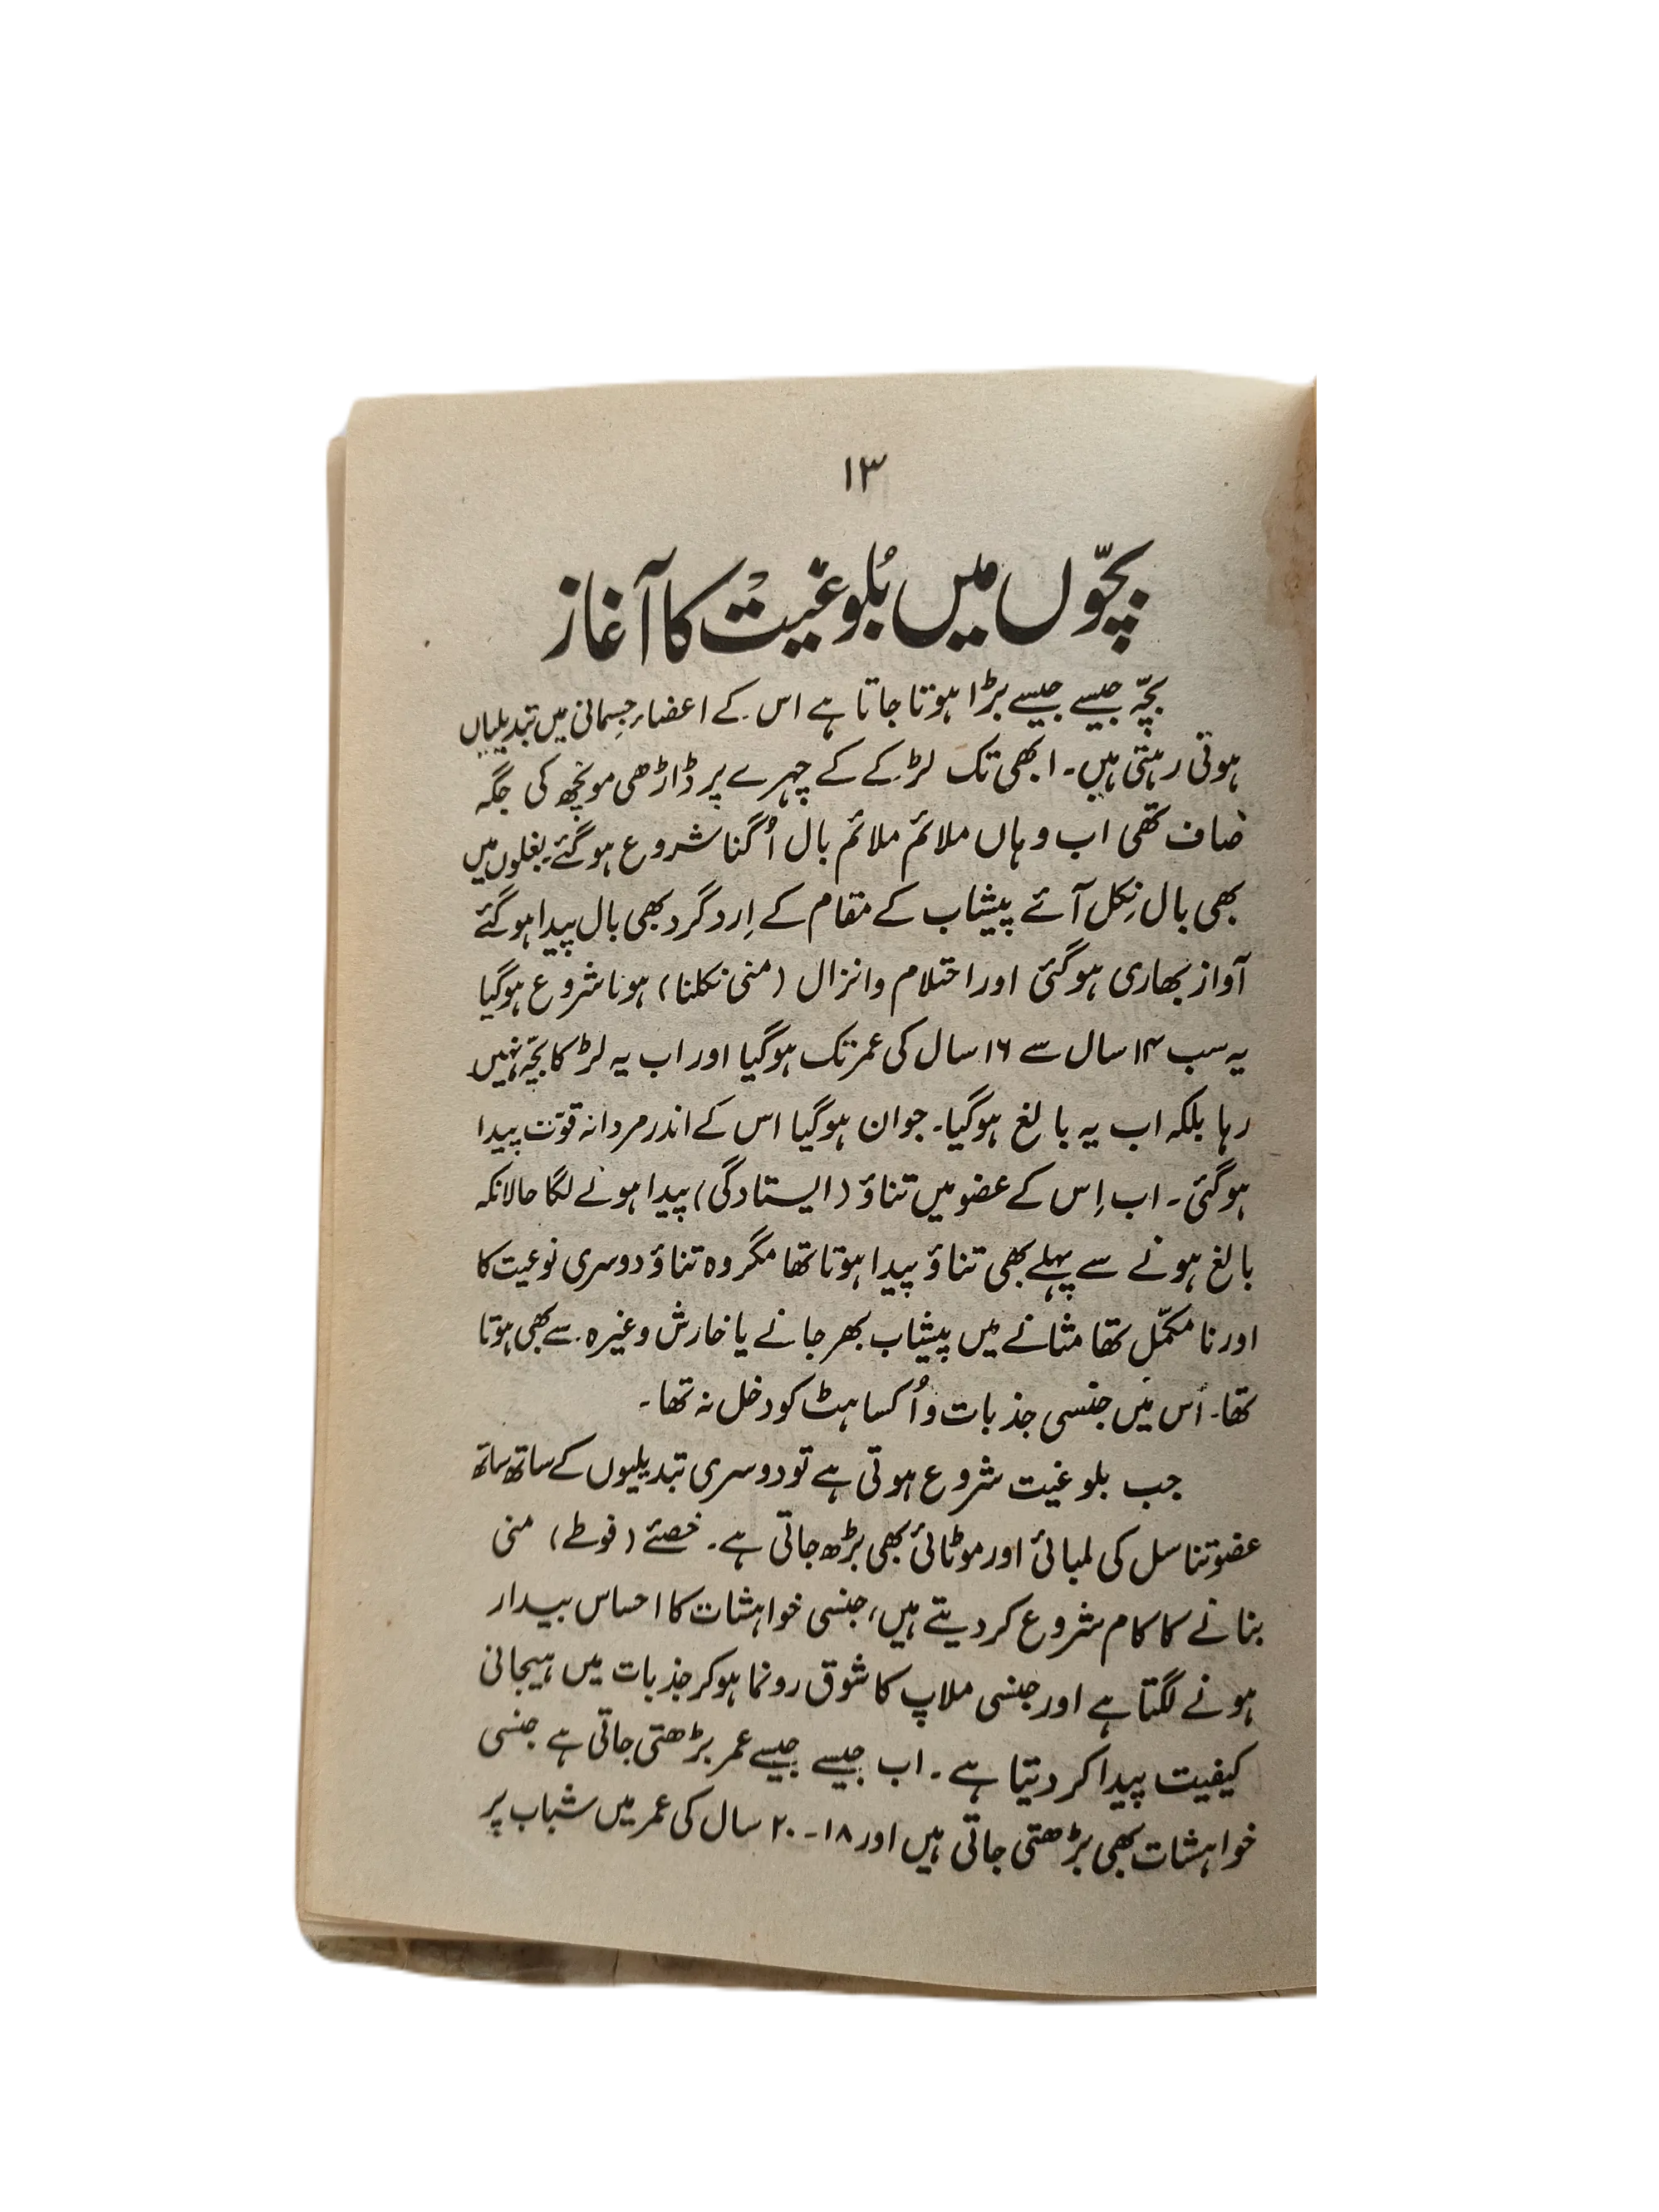 ۱۳
بچّوں میں بُلوغیت کا آغاز
بچّہ جیسے جیسے بڑا ہوتا جاتا ہے اس کے اعضاءِ جسمانی میں تبدیلیاں
ہوتی رہتی ہیں۔ ابھی تک لڑکے کے چہرے پر ڈاڑھی مونچھ کی جگہ
صاف تھی اب وہاں ملائم ملائم بال اُگنا شروع ہوگئے۔ بغلوں میں
بھی بال نِکل آئے پیشاب کے مقام کے اِرد گرد بھی بال پیدا ہوگئے
آواز بھاری ہوگئی اور احتلام و انزال (منی نکلنا) ہونا شروع ہوگیا
یہ سب ۱۴ سال سے ۱۶ سال کی عمر تک ہوگیا اور اب یہ لڑکا بچّہ نہیں
رہا بلکہ اب یہ بالغ ہوگیا۔ جوان ہوگیا اس کے اندر مردانہ قوّت پیدا
ہوگئی۔ اب اِس کے عضو میں تناؤ (ایستادگی) پیدا ہونے لگا حالانکہ
بالغ ہونے سے پہلے بھی تناؤ پیدا ہوتا تھا مگر وہ تناؤ دوسری نوعیت کا
اور نا مکمّل تھا مثانے میں پیشاب بھر جانے یا خارش وغیرہ سے بھی ہوتا
تھا۔ اُس میں جنسی جذبات و اُکساہٹ کو دخل نہ تھا۔
جب بلوغیت شروع ہوتی ہے تو دوسری تبدیلیوں کے ساتھ ساتھ
عضوتناسل کی لمبائی اور موٹائی بھی بڑھ جاتی ہے۔ خصئے (فوطے) منی
بنانے کا کام شروع کر دیتے ہیں، جنسی خواہشات کا احساس بیدار
ہونے لگتا ہے اور جنسی ملاپ کا شوق رونما ہوکر جذبات میں ہیجانی
کیفیت پیدا کر دیتا ہے۔ اب جیسے جیسے عمر بڑھتی جاتی ہے جنسی
خواہشات بھی بڑھتی جاتی ہیں اور ۱۸۔۲۰ سال کی عمر میں شباب پر